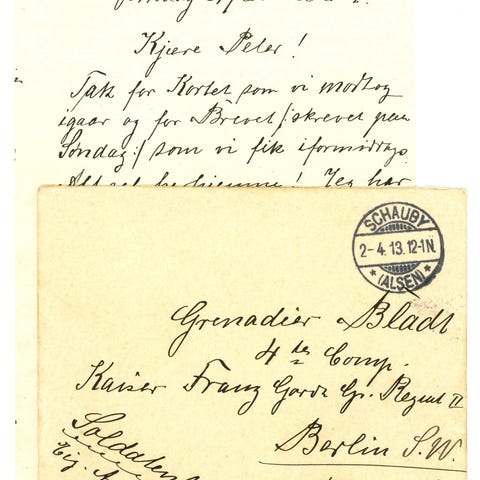 Kjære Peter!
Tak for Kortet som vi modtog
igaar og for Brevet /: skrevet paa
Søndag :/ som vi fik iformiddags
Alt vel herhjemme! Jeg har
SCHAUBY
2-4.13.12-1N.
* (ALSEN) *
Grenadier Bladt
4 ter Comp.
Kaiser Franz Garde Gr. Regmt II
Berlin S.W.
Soldaten
Eig. A